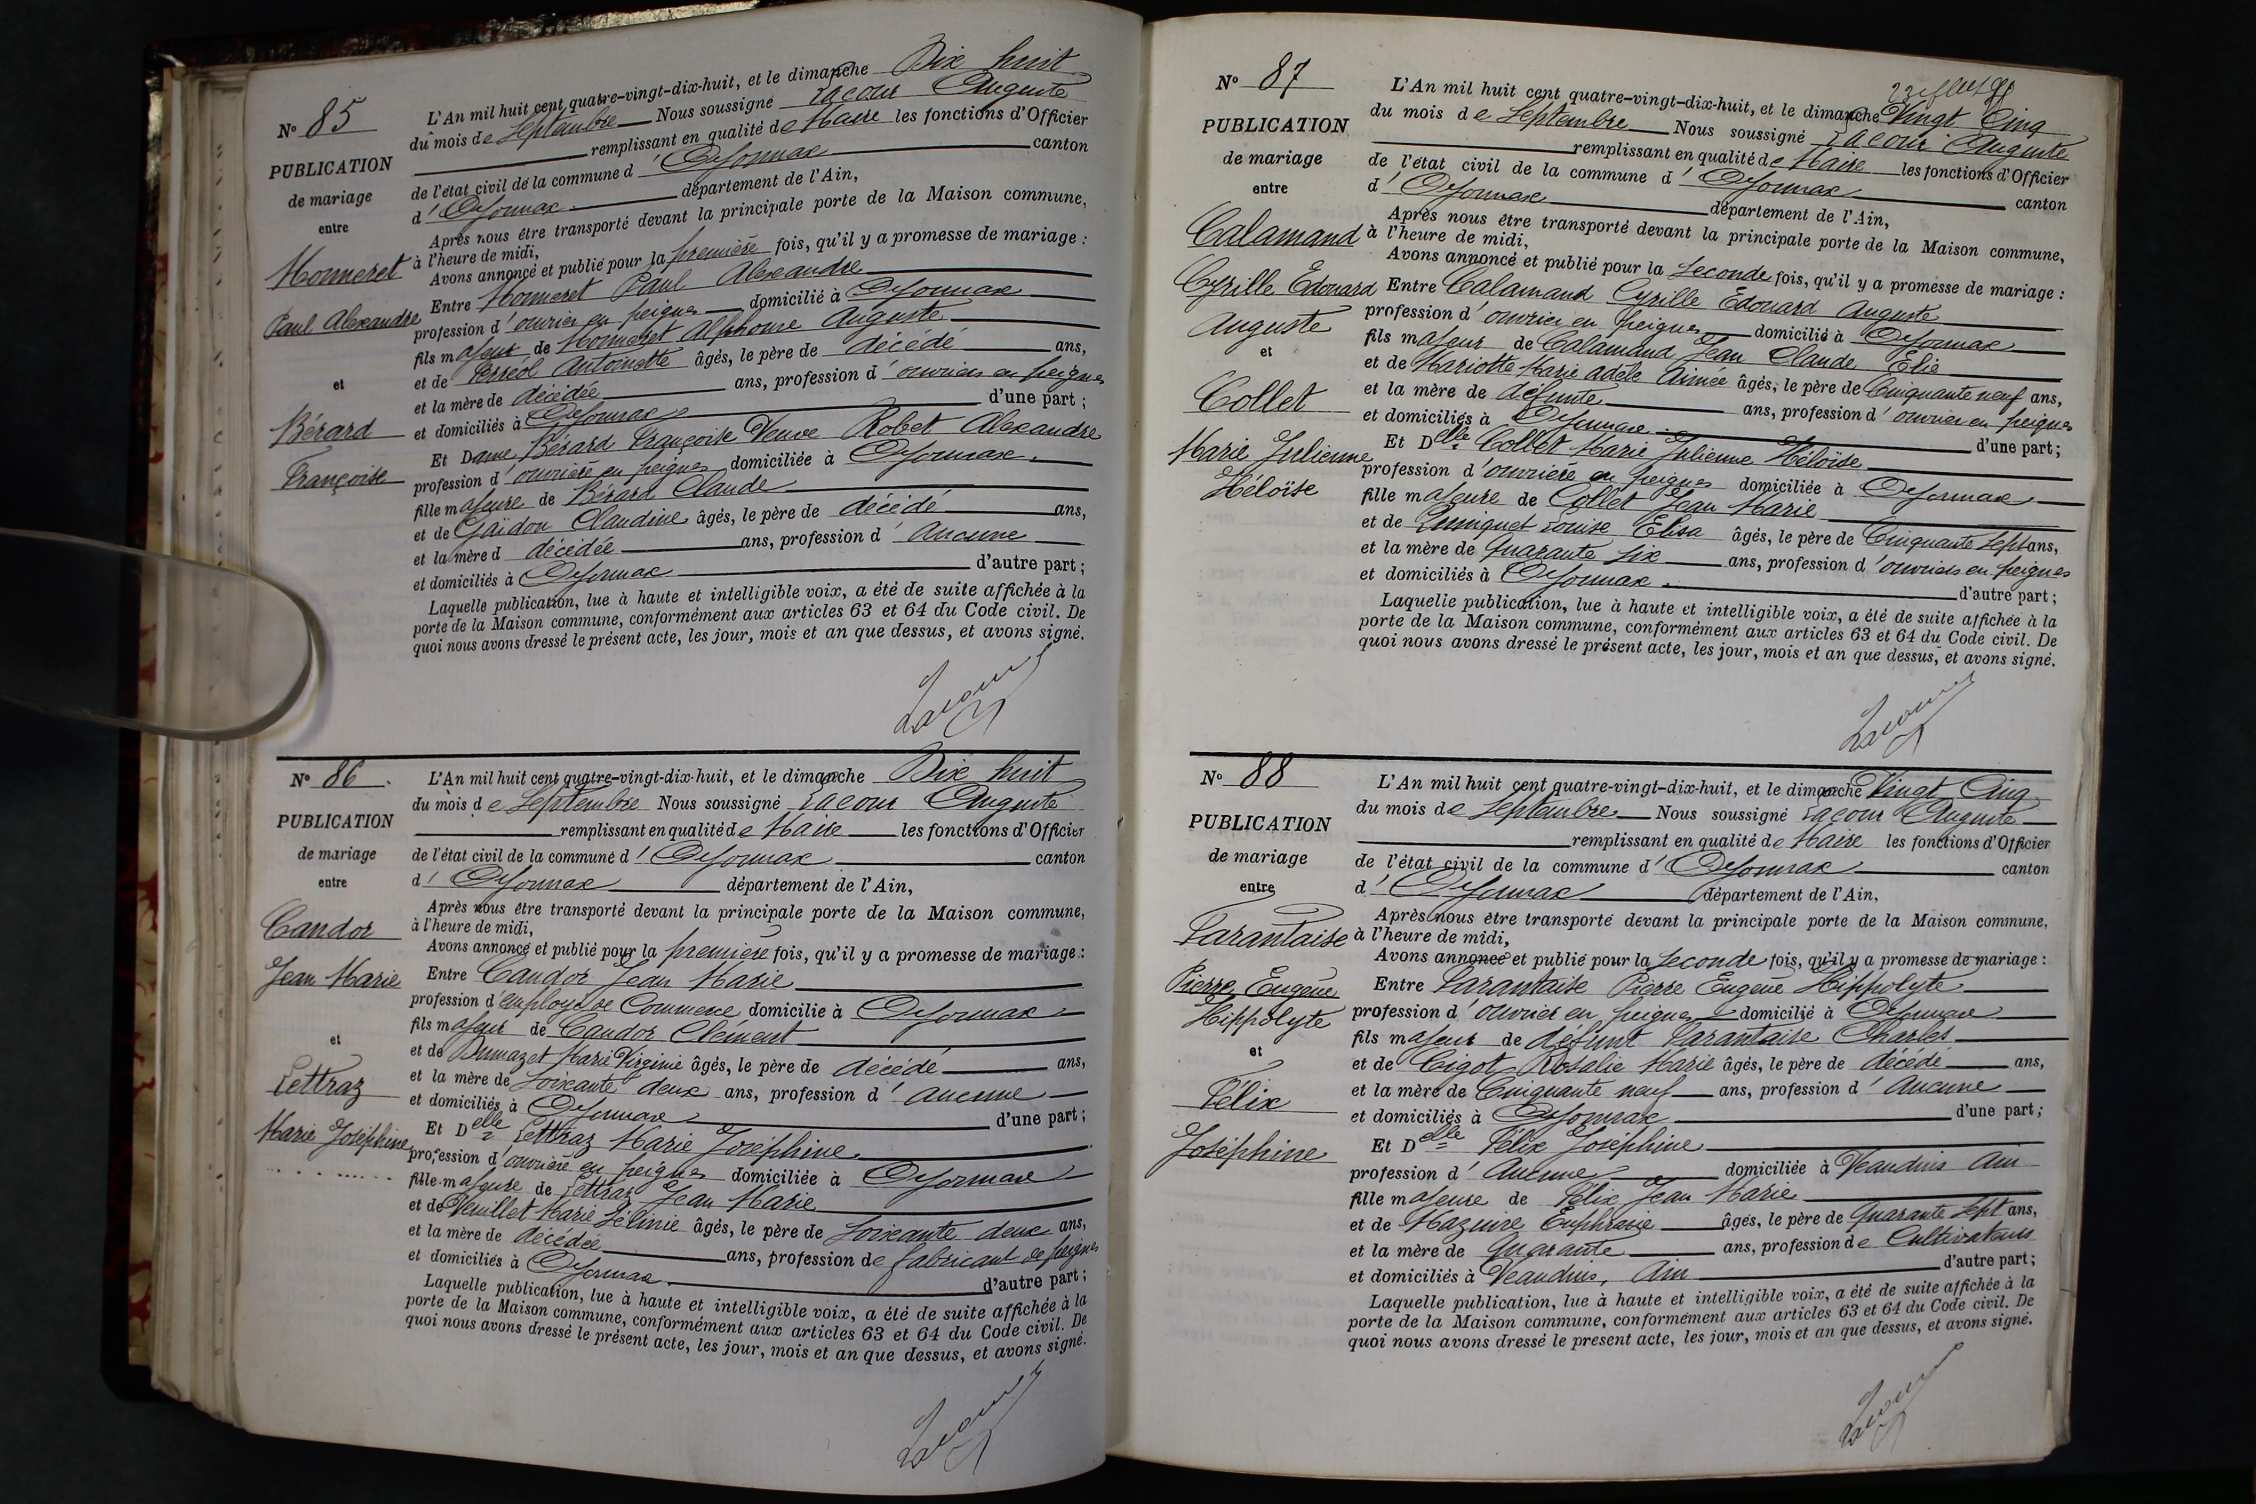 N° 85
PUBLICATION
de mariage
entre
Monneret
Paul Alexandre
et
Bérard
Françoise
L'An mil huit cent quatre-vingt-dix-huit, et le dimanche Dix huit
du mois de Septembre Nous soussigné Lacour Auguste
remplissant en qualité de Maire les fonctions d'Officier
de l'état civil de la commune d'Oyonnax canton
d'Oyonnax département de l'Ain,
Après nous être transporté devant la principale porte de la Maison commune,
à l'heure de midi,
Avons annoncé et publié pour la première fois, qu'il y a promesse de mariage :
Entre Monneret Paul Alexandre
profession d'ouvrier en peignes domicilié à Oyonnax
fils majeur de Monneret Alphonse Auguste
et de Perréol Antoinette âgés, le père de décédé ans,
et la mère de décédée ans, profession d'ouvriers en peignes
et domiciliés à Oyonnax d'une part ;
Et Dame Bérard Françoise Veuve Robet Alexandre
profession d'ouvrière en peignes domiciliée à Oyonnax.
fille majeure de Bérard Claude
et de Gaidon Claudine âgés, le père de décédé ans,
et la mère d décédée ans, profession d'Aucune
et domiciliés à Oyonnax d'autre part ;
Laquelle publication, lue à haute et intelligible voix, a été de suite affichée à la
porte de la Maison commune, conformément aux articles 63 et 64 du Code civil. De
quoi nous avons dressé le présent acte, les jour, mois et an que dessus, et avons signé.
Lacour
N° 86.
PUBLICATION
de mariage
entre
Candor
Jean Marie
et
Lettraz
Marie Joséphine
L'An mil huit cent quatre-vingt-dix-huit, et le dimanche Dix huit
du mois de Septembre Nous soussigné Lacour Auguste
remplissant en qualité de Maire les fonctions d'Officier
de l'état civil de la commune d'Oyonnax canton
d'Oyonnax département de l'Ain,
Après nous être transporté devant la principale porte de la Maison commune,
à l'heure de midi,
Avons annoncé et publié pour la première fois, qu'il y a promesse de mariage :
Entre Candor Jean Marie
profession d'employé de Commerce domicilié à Oyonnax
fils majeur de Candor Clément
et de Dumazet Marie Virginie âgés, le père de décédé ans,
et la mère de Soixante deux ans, profession d'Aucune
et domiciliés à Oyonnax d'une part ;
Et Delle Lettraz Marie Joséphine
profession d'ouvrière en peignes domiciliée à Oyonnax
fille majeure de Lettraz Jean Marie
et de Veuillet Marie Zélinie âgés, le père de Soixante deux ans,
et la mère de décédée ans, profession de fabricant de peignes
et domiciliés à Oyonnax d'autre part ;
Laquelle publication, lue à haute et intelligible voix, a été de suite affichée à la
porte de la Maison commune, conformément aux articles 63 et 64 du Code civil. De
quoi nous avons dressé le présent acte, les jour, mois et an que dessus, et avons signé.
Lacour
N° 87
PUBLICATION
de mariage
entre
Calamand
Cyrille Edouard
Auguste
et
Collet
Marie Julienne
Héloïse
L'An mil huit cent quatre-vingt-dix-huit, et le dimanche Vingt Cinq
du mois de Septembre Nous soussigné Lacour Auguste
remplissant en qualité de Maire les fonctions d'Officier
de l'état civil de la commune d'Oyonnax canton
d'Oyonnax département de l'Ain,
Après nous être transporté devant la principale porte de la Maison commune,
à l'heure de midi,
Avons annoncé et publié pour la Seconde fois, qu'il y a promesse de mariage :
Entre Calamand Cyrille Edouard Auguste
profession d'ouvrier en peignes domicilié à Oyonnax
fils majeur de Calamand Jean Claude Elie
et de Mariotte Marie Adèle Aimée âgés, le père de Cinquante neuf ans,
et la mère de défunte ans, profession d'ouvrier en peignes
et domiciliés à Oyonnax. d'une part ;
Et Delle Collet Marie Julienne Héloïse
profession d'ouvrière en peignes domiciliée à Oyonnax
fille majeure de Collet Jean Marie
et de Louise Elisa âgés, le père de Cinquante Sept ans,
et la mère de Quarante six ans, profession d'ouvriers en peignes
et domiciliés à Oyonnax. d'autre part ;
Laquelle publication, lue à haute et intelligible voix, a été de suite affichée à la
porte de la Maison commune, conformément aux articles 63 et 64 du Code civil. De
quoi nous avons dressé le présent acte, les jour, mois et an que dessus, et avons signé.
Lacour
N° 88
PUBLICATION
de mariage
entre
Tarantaise
Pierre Eugène
Hippolyte
et
Félix
Joséphine
L'An mil huit cent quatre-vingt-dix-huit, et le dimanche Vingt Cinq
du mois de Septembre Nous soussigné Lacour Auguste
remplissant en qualité de Maire les fonctions d'Officier
de l'état civil de la commune d'Oyonnax canton
d'Oyonnax département de l'Ain,
Après nous être transporté devant la principale porte de la Maison commune,
à l'heure de midi,
Avons annoncé et publié pour la Seconde fois, qu'il y a promesse de mariage :
Entre Tarantaise Pierre Eugène Hippolyte
profession d'ouvrier en peignes domicilié à Oyonnax
fils majeur de défunt Tarantaise Charles
et de Cigot Rosalie Marie âgés, le père de décédé ans,
et la mère de Cinquante neuf ans, profession d'Aucune
et domiciliés à Oyonnax d'une part ;
Et Delle Félix Joséphine
profession d'Aucune domiciliée à Veaudins Ain
fille majeure de Félix Jean Marie
et de Mazuire Euphrasie âgés, le père de Quarante sept ans,
et la mère de Quarante ans, profession de Cultivateurs
et domiciliés à Veaudins, Ain d'autre part ;
Laquelle publication, lue à haute et intelligible voix, a été de suite affichée à la
porte de la Maison commune, conformément aux articles 63 et 64 du Code civil. De
quoi nous avons dressé le présent acte, les jour, mois et an que dessus, et avons signé.
Lacour